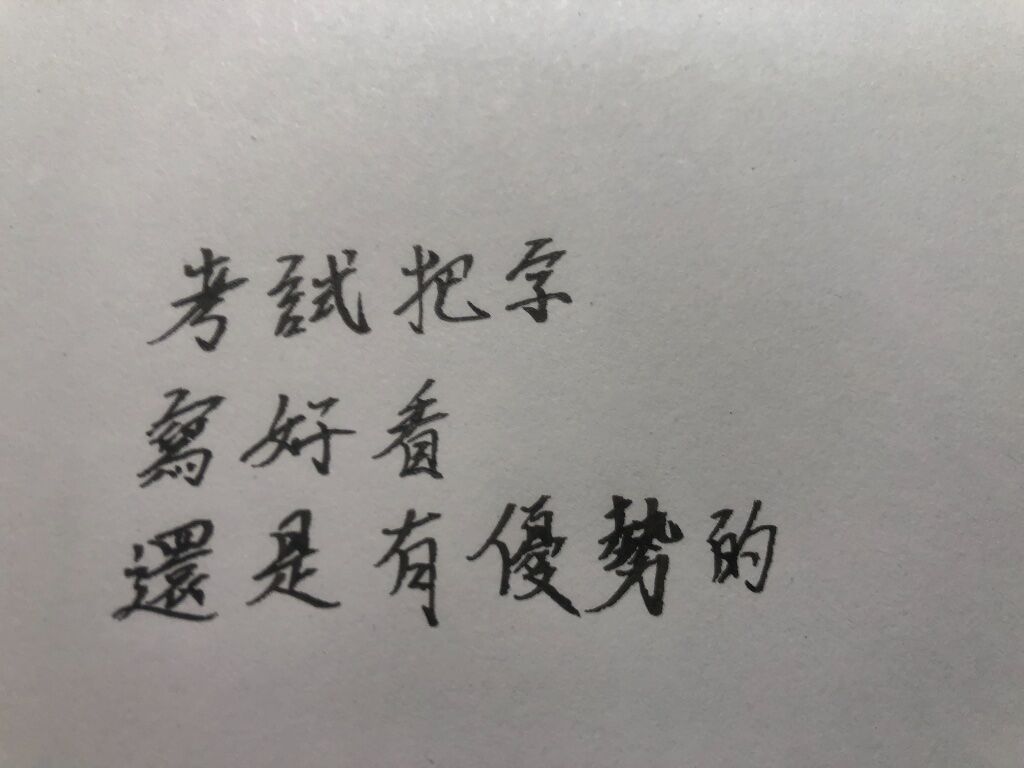 考試把字
寫好看
還是有優勢的